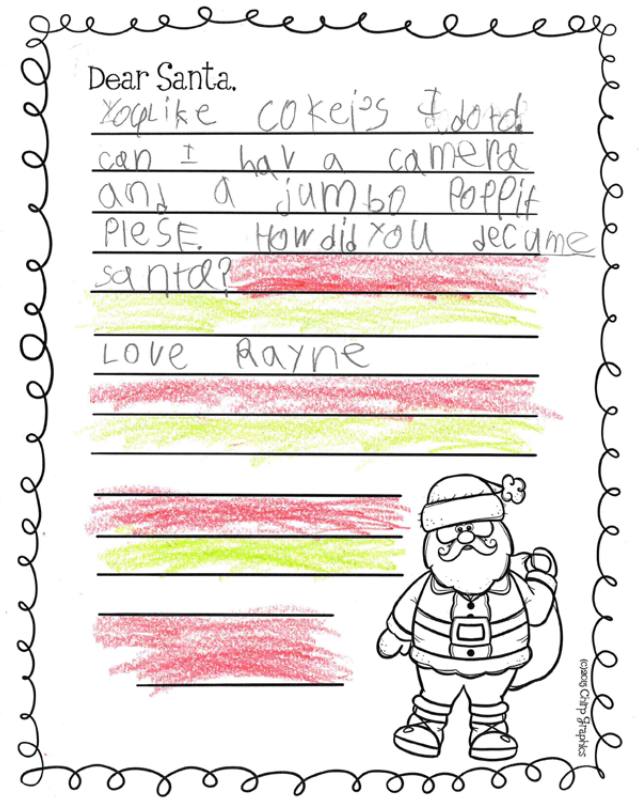 Dear Santa,
You Like cokei's I do to!
can I hav a camera
and a jumbo PoPPit
PleSE. How did You becume
santa?
Love Rayne
(c)2015 Chirp Graphics